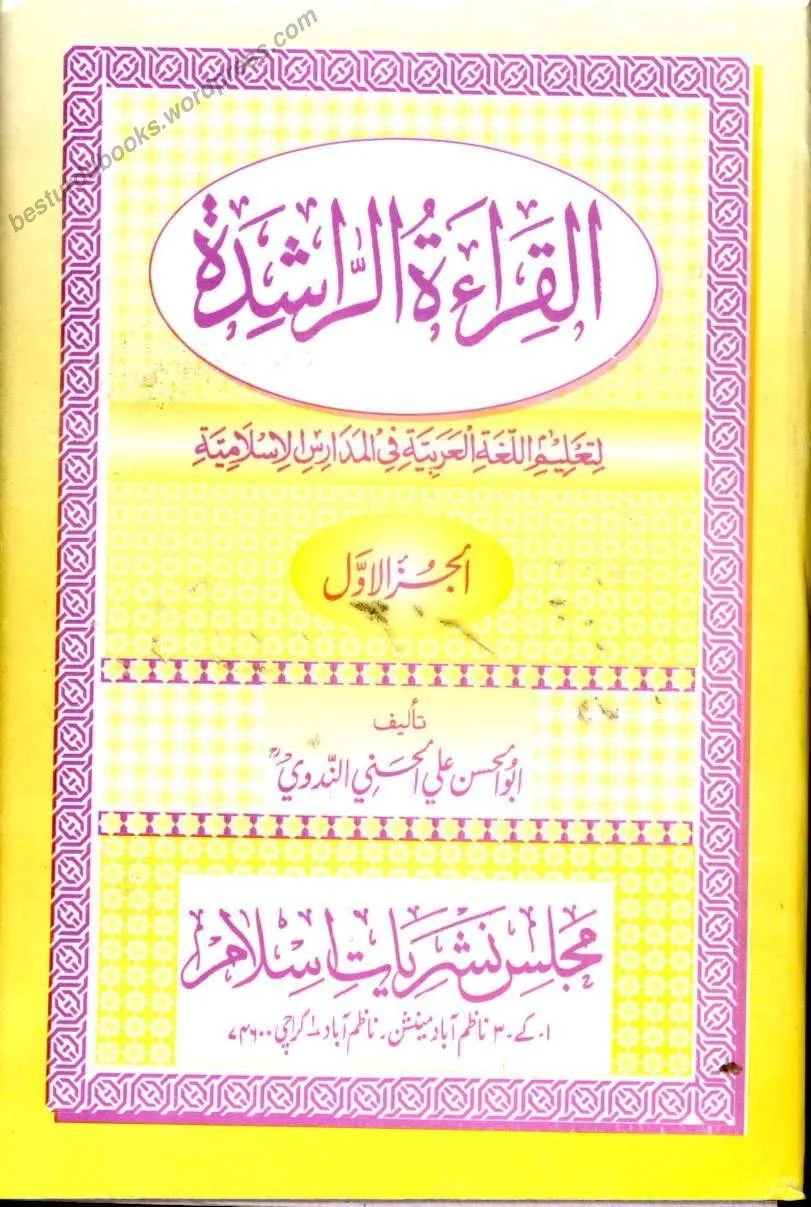 besturdubooks.wordpress.com
القِرَاءَةُ الرَّاشِدَة
لِتَعْلِيْمِ اللُّغَةِ الْعَرَبِيَّةِ فِي الْمَدَارِسِ الْاِسْلَامِيَّةِ
الجُزْءُ الأوَّل
تأليف
ابوالحسن علي الحسني النَّدوي رح
مجلس نشریات اسلام
ا۔کے۔۳ ناظم آباد مینشن۔ ناظم آباد ۱ کراچی ۷۴۶۰۰